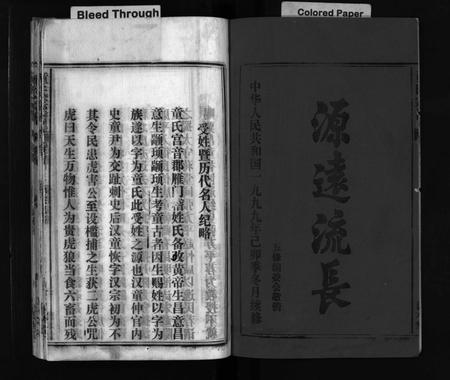 Bleed Through
Colored Paper
源遠流長
中华人民共和国一九九九年己卯季冬月续修
受姓暨历代名人纪略
童氏宫音郡雁门 姓氏备考黄帝生昌意昌
意生颛顼颛顼生考童古者因生赐姓以字为
族遂以字为童氏此受姓之源也汉童仲官内
史童尹为交趾刺史后汉童恢字汉宗初为不
其令民患虎害公至设槛捕之生获二虎公咒
虎曰天生万物惟人为贵虎狼当食六畜而残